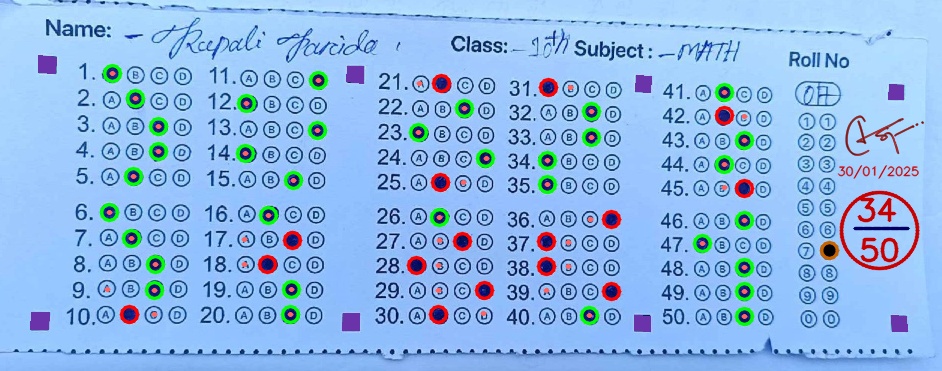 Name: - Rupali Parida Class: - 10th Subject: - MATH Roll No
1. B C D
2. A C D
3. A B D
4. A B D
5. A C D
6. B C D
7. A C D
8. A B D
9. A B D
10. A C D
11. A B C
12. B C D
13. A B C
14. B C D
15. A B D
16. A C D
17. A B D
18. A C D
19. A B D
20. A B D
21. A C D
22. A B D
23. B C D
24. A B C
25. A C D
26. A C D
27. A B D
28. B C D
29. A B C
30. A C D
31. B C D
32. A B D
33. A B D
34. B C D
35. B C D
36. A B C
37. B C D
38. B C D
39. A B C
40. A B D
41. A C D
42. A C D
43. A B D
44. A C D
45. A B D
46. A B D
47. B C D
48. A B D
49. A B D
50. A B D
07
1 1
2 2
3 3
4 4
5 5
6 6
7
8 8
9 9
0 0
30/01/2025
34
50